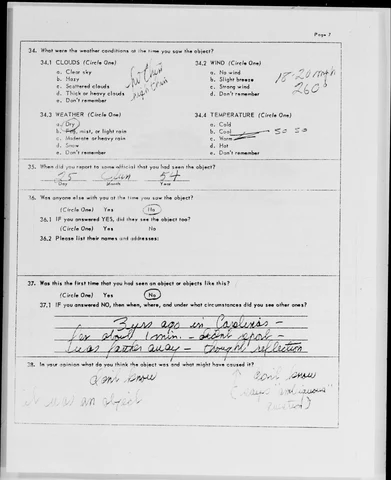 Page 7
34. What were the weather conditions at the time you saw the object?
34.1 CLOUDS (Circle One)
a. Clear sky
b. Hazy
c. Scattered clouds
d. Thick or heavy clouds
e. Don't remember
34.2 WIND (Circle One)
a. No wind
b. Slight breeze
c. Strong wind
d. Don't remember
18-20 mph
260°
34.3 WEATHER (Circle One)
a. Dry
b. Fog, mist, or light rain
c. Moderate or heavy rain
d. Snow
e. Don't remember
34.4 TEMPERATURE (Circle One)
a. Cold
b. Cool
c. Warm
d. Hot
e. Don't remember
50
35. When did you report to some official that you had seen the object?
25 Jan 54
Day Month Year
36. Was anyone else with you at the time you saw the object?
(Circle One) Yes No
36.1 IF you answered YES, did they see the object too?
(Circle One) Yes No
36.2 Please list their names and addresses:
37. Was this the first time that you had seen an object or objects like this?
(Circle One) Yes No
37.1 IF you answered NO, then when, where, and under what circumstances did you see other ones?
3 yrs ago in Carolinas -
for about 1 min. -
was farther away - thought reflection
38. In your opinion what do you think the object was and what might have caused it?
don't know
it was an object
don't know